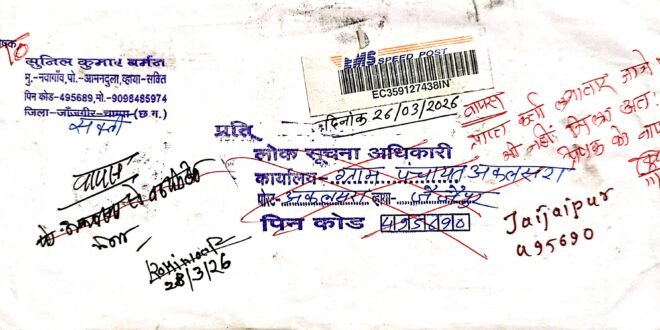 सुनिल कुमार बर्मन
मु.-नवागाँव,पो.-आमनदुला,व्हाया-सक्ति
पिन कोड-495689,मो.-9098485974
जिला-जाँजगीर-चाम्पा (छ.ग.)
सक्ती
EMS SPEED POST
EC359127438IN
दिनांक 26/03/2026
प्रति,
लोक सूचना अधिकारी
कार्यालय- ग्राम पंचायत अकलसरा
पोस्ट- अकलसरा व्हाया-
पिन कोड 495690
वापस
28/3/26
वापस
प्राप्त कर्ता लगातार जाने
भी नहीं मिला अतः
प्रेषक को वापस
Jaijaipur
495690